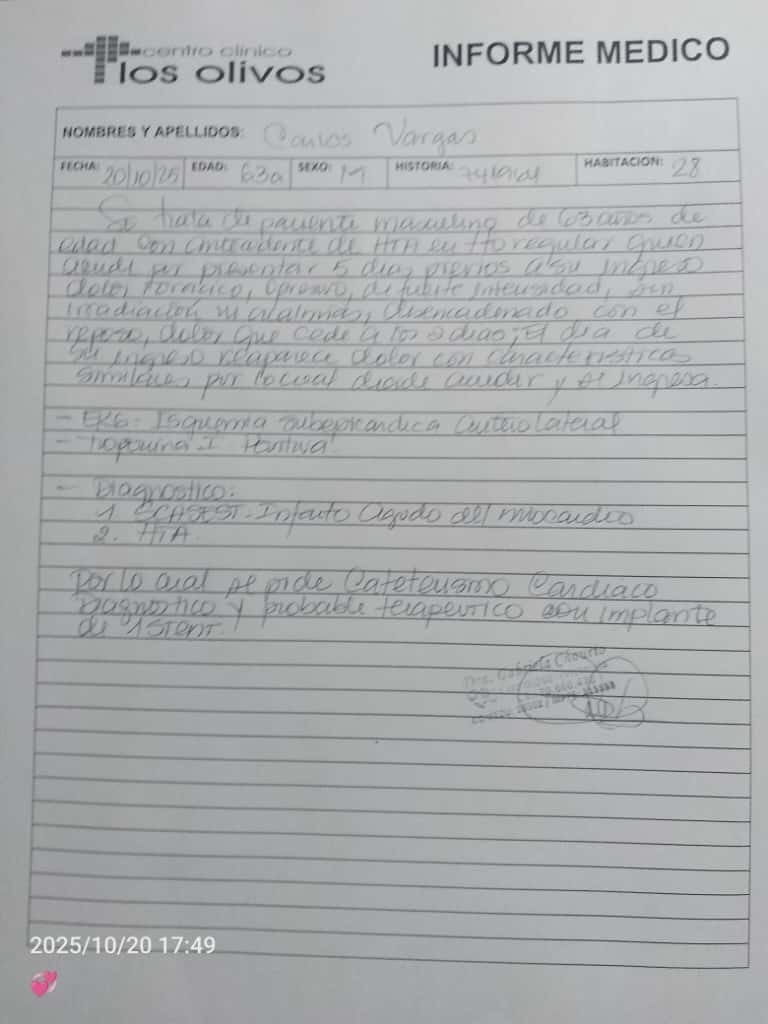 centro clinico
los olivos
INFORME MEDICO
NOMBRES Y APELLIDOS: Carlos Vargas
FECHA: 20/10/25 EDAD: 63a SEXO: M HISTORIA: HABITACION: 28
Se trata de paciente masculino de 63 años de
edad con antecedente de HTA en tto regular quien
acude por presentar 5 dias previos a su ingreso
dolor toracico, opresivo, de fuerte intensidad, sin
irradiación ni desencadenado con el
reposo, dolor que cede a los 2 dias; El dia de
su ingreso reaparece dolor con caracteristicas
similares por lo cual decide acudir y se ingresa.
- EKG: Isquemia subepicardica anterolateral
- Troponina I Positiva
- Diagnostico:
1. SCASEST- Infarto Agudo del miocardio
2. HTA.
Por lo cual se pide Cateterismo Cardiaco
Diagnostico y probable terapeutico con implante
de 1 STENT.
Dra. Gabriela
2025/10/20 17:49